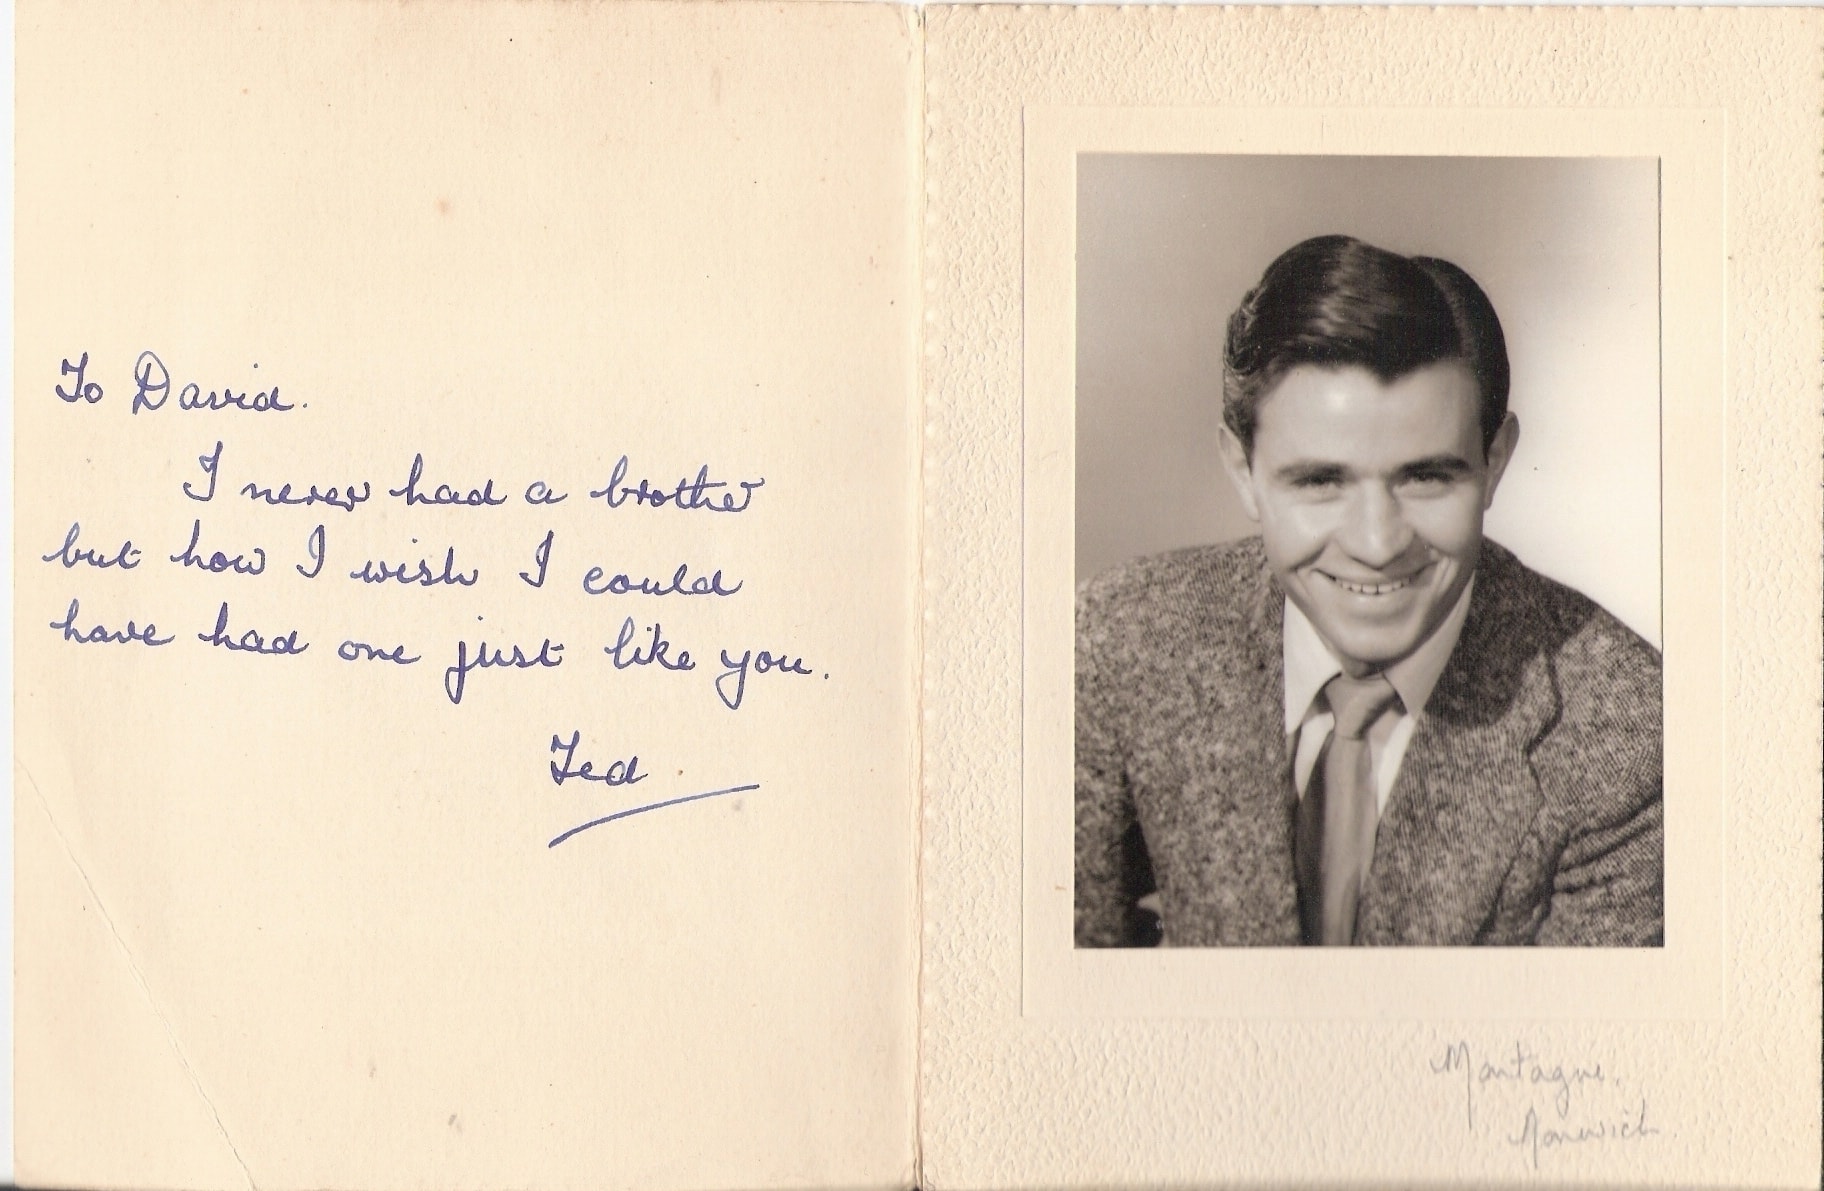 To David.
I never had a brother
but how I wish I could
have had one just like you.
Ted
Montague.
Norwich